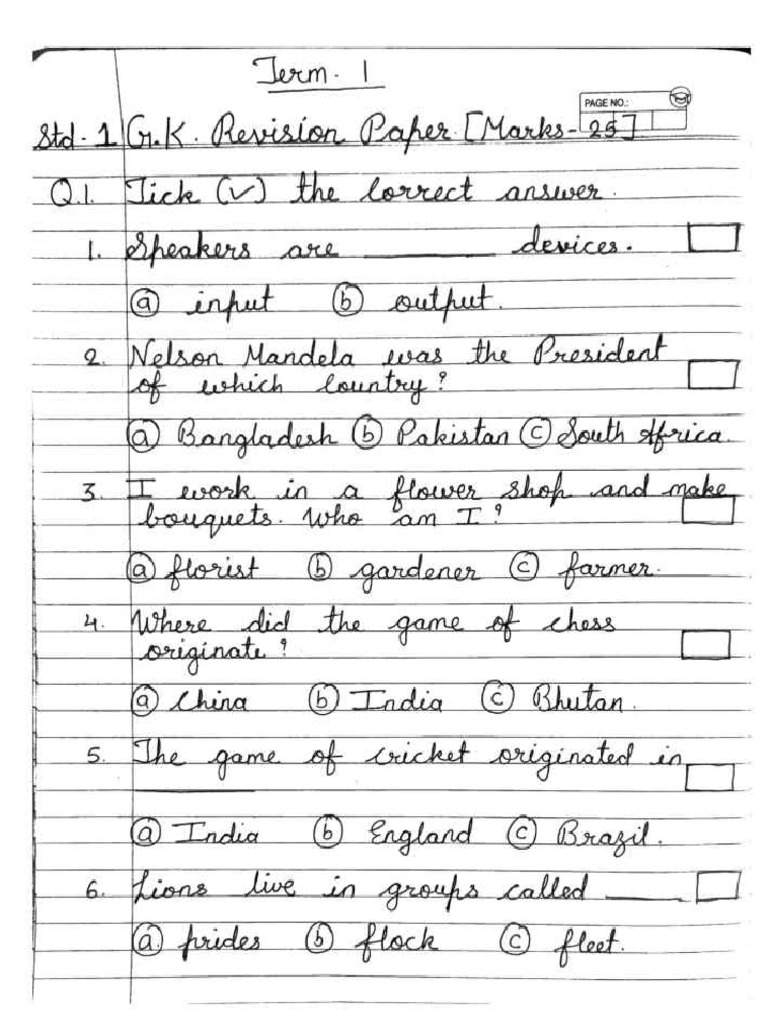 Term. 1
PAGE NO.:
Std. 1 G.K. Revision Paper. [Marks-25]
Q.1. Tick (✓) the correct answer.
1. Speakers are ________ devices.
ⓐ input ⓑ output.
2. Nelson Mandela was the President
of which country?
ⓐ Bangladesh ⓑ Pakistan ⓒ South Africa.
3. I work in a flower shop and make
bouquets. Who am I?
ⓐ florist ⓑ gardener ⓒ farmer.
4. Where did the game of chess
originate?
ⓐ China ⓑ India ⓒ Bhutan.
5. The game of cricket originated in
________
ⓐ India ⓑ England ⓒ Brazil.
6. Lions live in groups called ________
ⓐ prides ⓑ flock ⓒ fleet.